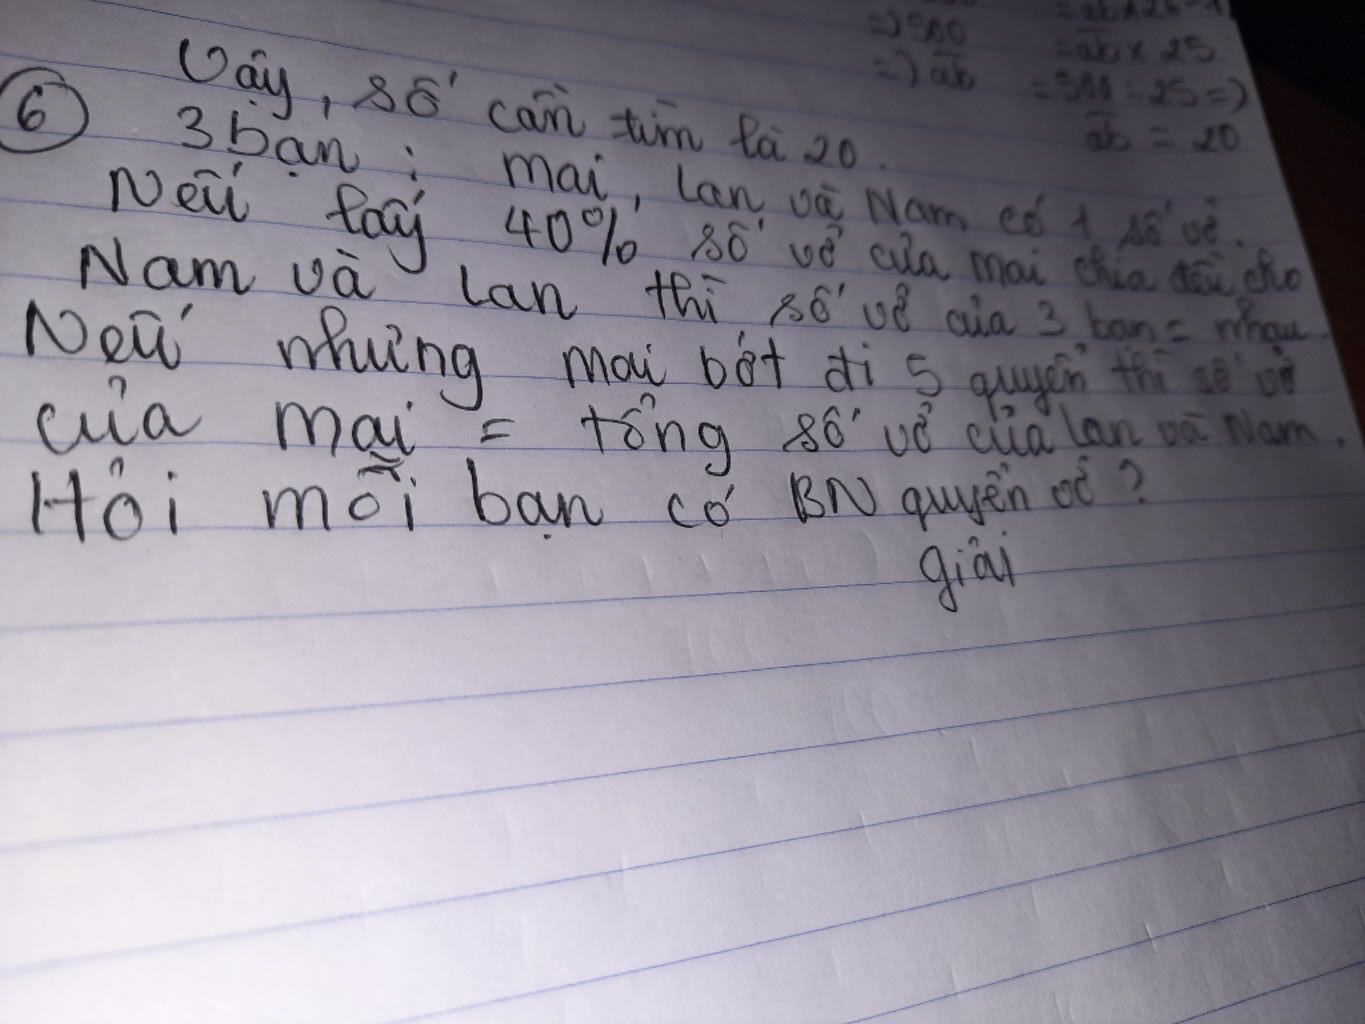 =) 500
= ab x 25
=) ab
= 500 : 25 =)
ab = 20
Vậy, số cần tìm là 20.
6 3 bạn : Mai, Lan và Nam có 1 số vở.
Nếu lấy 40% số vở của Mai chia đều cho
Nam và Lan thì số vở của 3 bạn = nhau.
Nếu nhưng Mai bớt đi 5 quyển thì số vở
của Mai = tổng số vở của Lan và Nam.
Hỏi mỗi bạn có BN quyển vở ?
giải